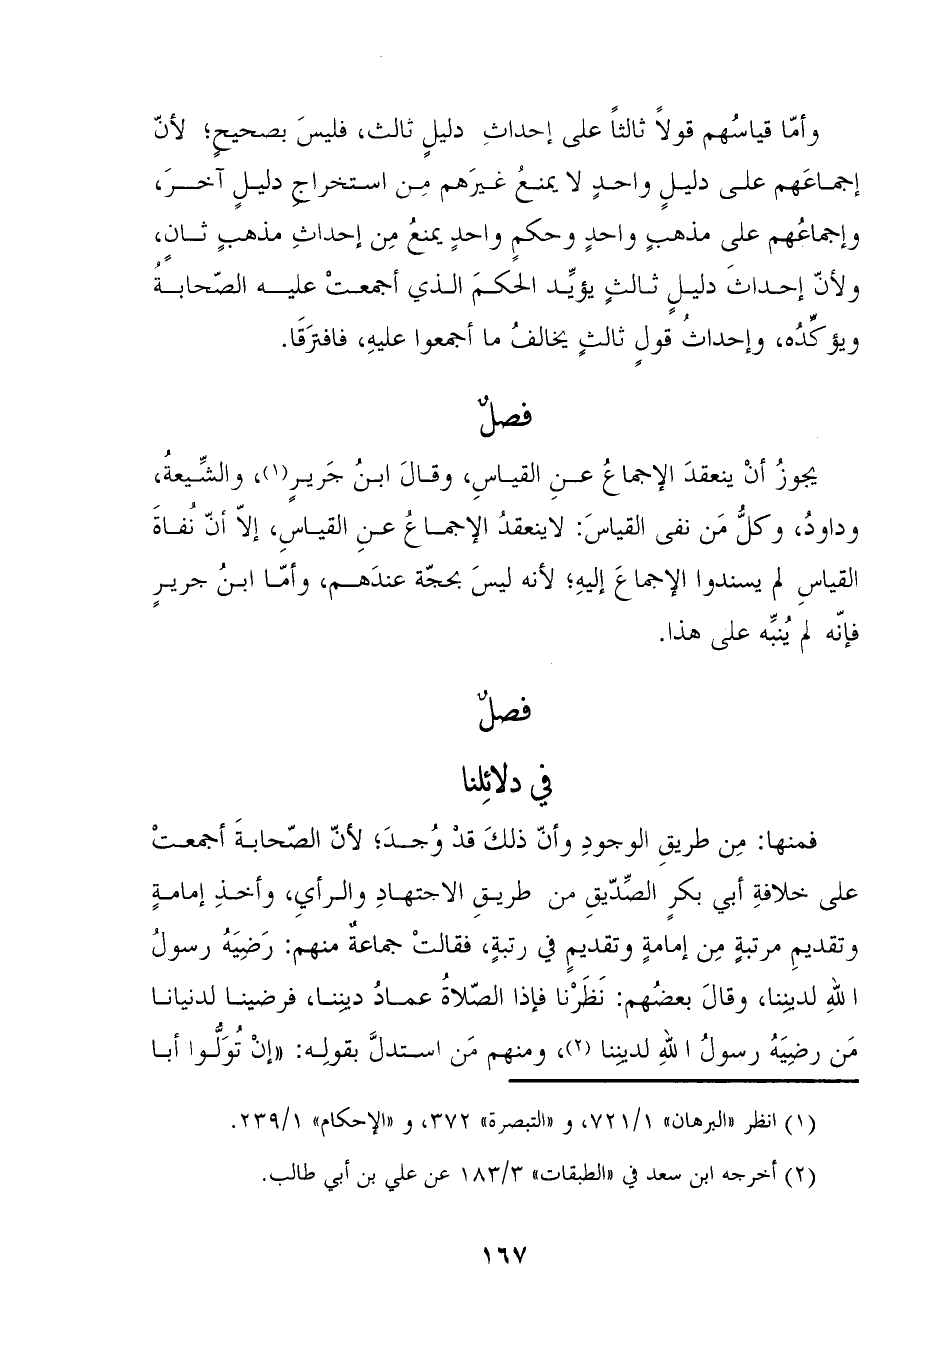 وأمّا قياسُهم قولاً ثالثاً على إحداثِ دليلٍ ثالث، فليسَ بصحيحٍ؛ لأنّ
إجماعَهم على دليلٍ واحدٍ لا يمنعُ غيرَهم مِن استخراجِ دليلٍ آخرَ،
وإجماعُهم على مذهبٍ واحدٍ وحكمٍ واحدٍ يمنعُ مِن إحداثِ مذهبٍ ثانٍ،
ولأنّ إحداثَ دليلٍ ثالثٍ يؤيِّد الحكمَ الذي أجمعتْ عليه الصّحابةُ
ويؤكِّدُه، وإحداثُ قولٍ ثالثٍ يخالفُ ما أجمعوا عليهِ، فافترَقَا.
فصلٌ
يجوزُ أنْ ينعقدَ الإجماعُ عنِ القياسِ، وقالَ ابنُ جَريرٍ(١)، والشِّيعةُ،
وداودُ، وكلُّ مَن نفى القياسَ: لاينعقدُ الإجماعُ عنِ القياسِ، إلاّ أنّ نُفاةَ
القياسِ لم يسندوا الإجماعَ إليهِ؛ لأنه ليسَ بحجّة عندَهم، وأمّا ابنُ جريرٍ
فإنّه لم يُنبِّه على هذا.
فصلٌ
في دلائِلنا
فمنها: مِن طريقِ الوجودِ وأنّ ذلكَ قدْ وُجدَ؛ لأنّ الصّحابةَ أجمعتْ
على خلافةِ أبي بكرٍ الصِّدّيقِ من طريقِ الاجتهادِ والرأيِ، وأخذِ إمامةٍ
وتقديمِ مرتبةٍ مِن إمامةٍ وتقديمٍ في رتبةٍ، فقالتْ جماعةٌ منهم: رَضِيَهُ رسولُ
اللهِ لدينِنا، وقالَ بعضُهم: نَظَرْنا فإذا الصّلاةُ عمادُ دينِنا، فرضينا لدنيانا
مَن رضِيَهُ رسولُ اللهِ لدينِنا (٢)، ومنهم مَن استدلَّ بقولِه: «إنْ تُوَلُّوا أبا
(١) انظر «البرهان» ٧٢١/١، و «التبصرة» ٣٧٢، و «الإحكام» ٢٣٩/١.
(٢) أخرجه ابن سعد في «الطبقات» ١٨٣/٣ عن علي بن أبي طالب.
١٦٧